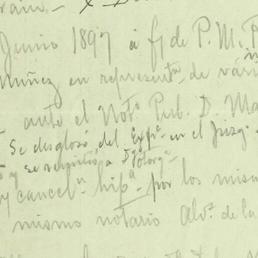 Junio 1897 á fj de P. M. P
Nuñez en representn de vari
ante el Noto Pub. D. Ma
Se desglosó del Expte en el Juzg
y se remitió a
y canceln hipa por los mism
mismo notario Alvo de la